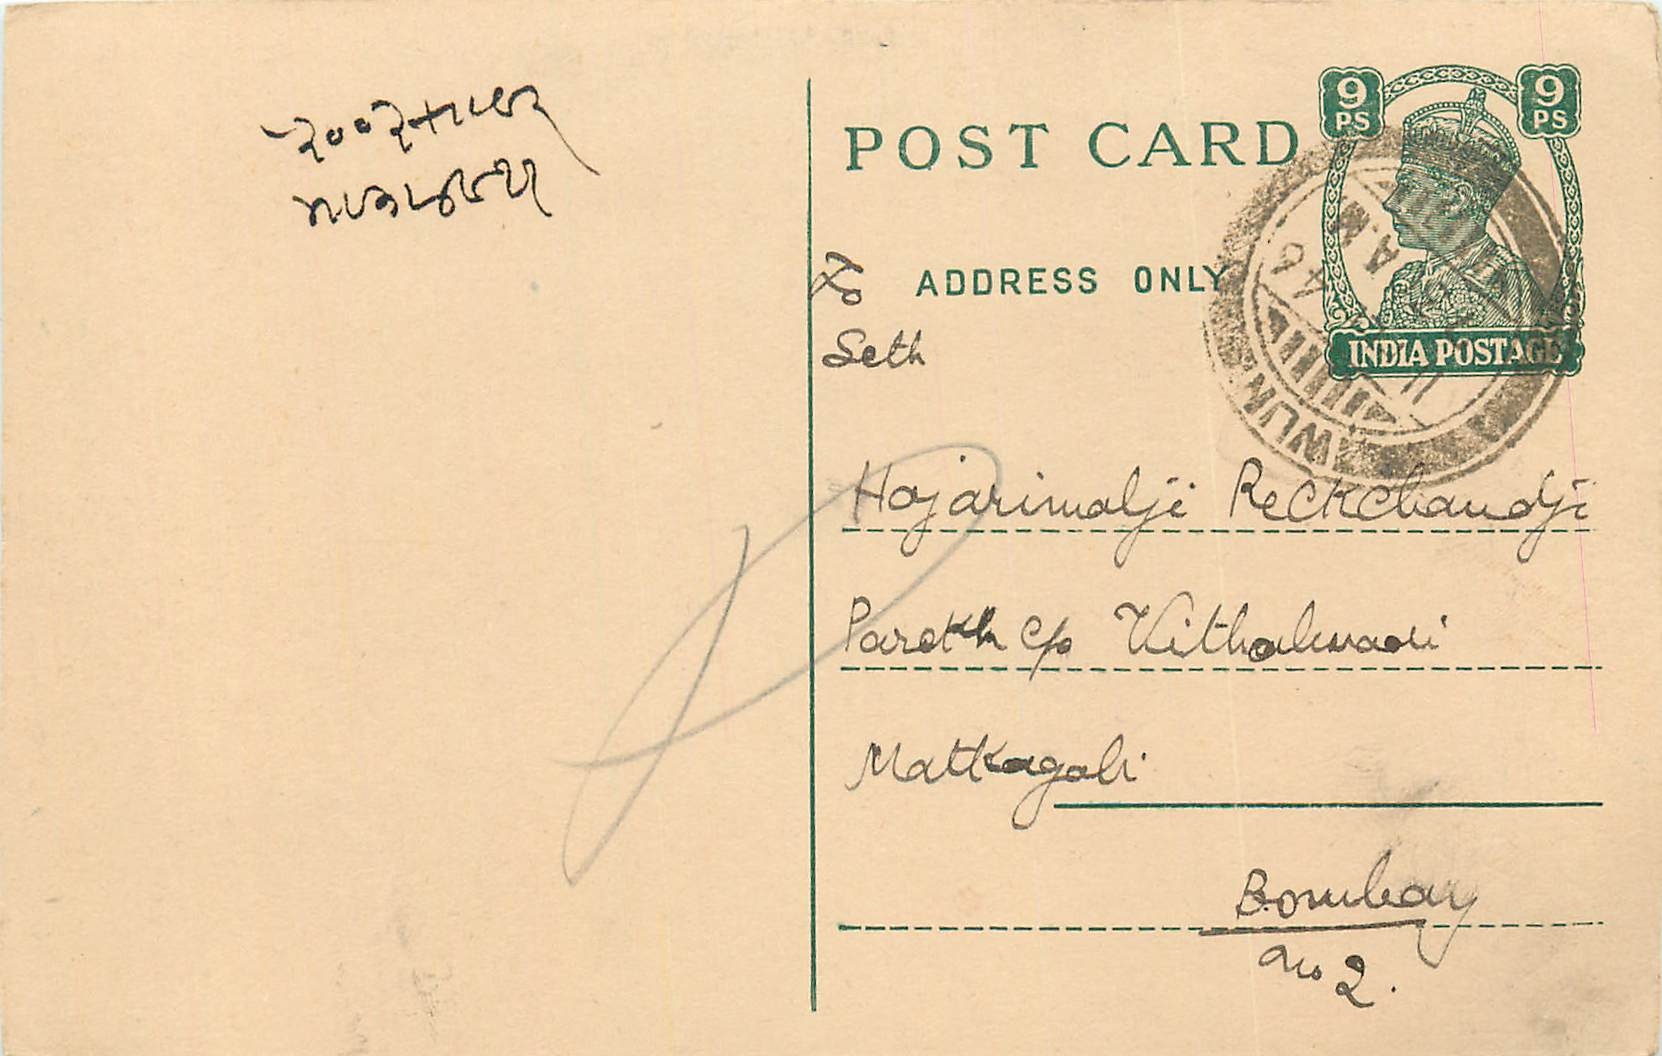 POST CARD
9 PS
9 PS
INDIA POSTAGE
A.M
46
To
ADDRESS ONLY
Seth
Hajarimalji Reckchandji
Parekh c/o Vithalwadi
Matkagali
Bombay
No 2.